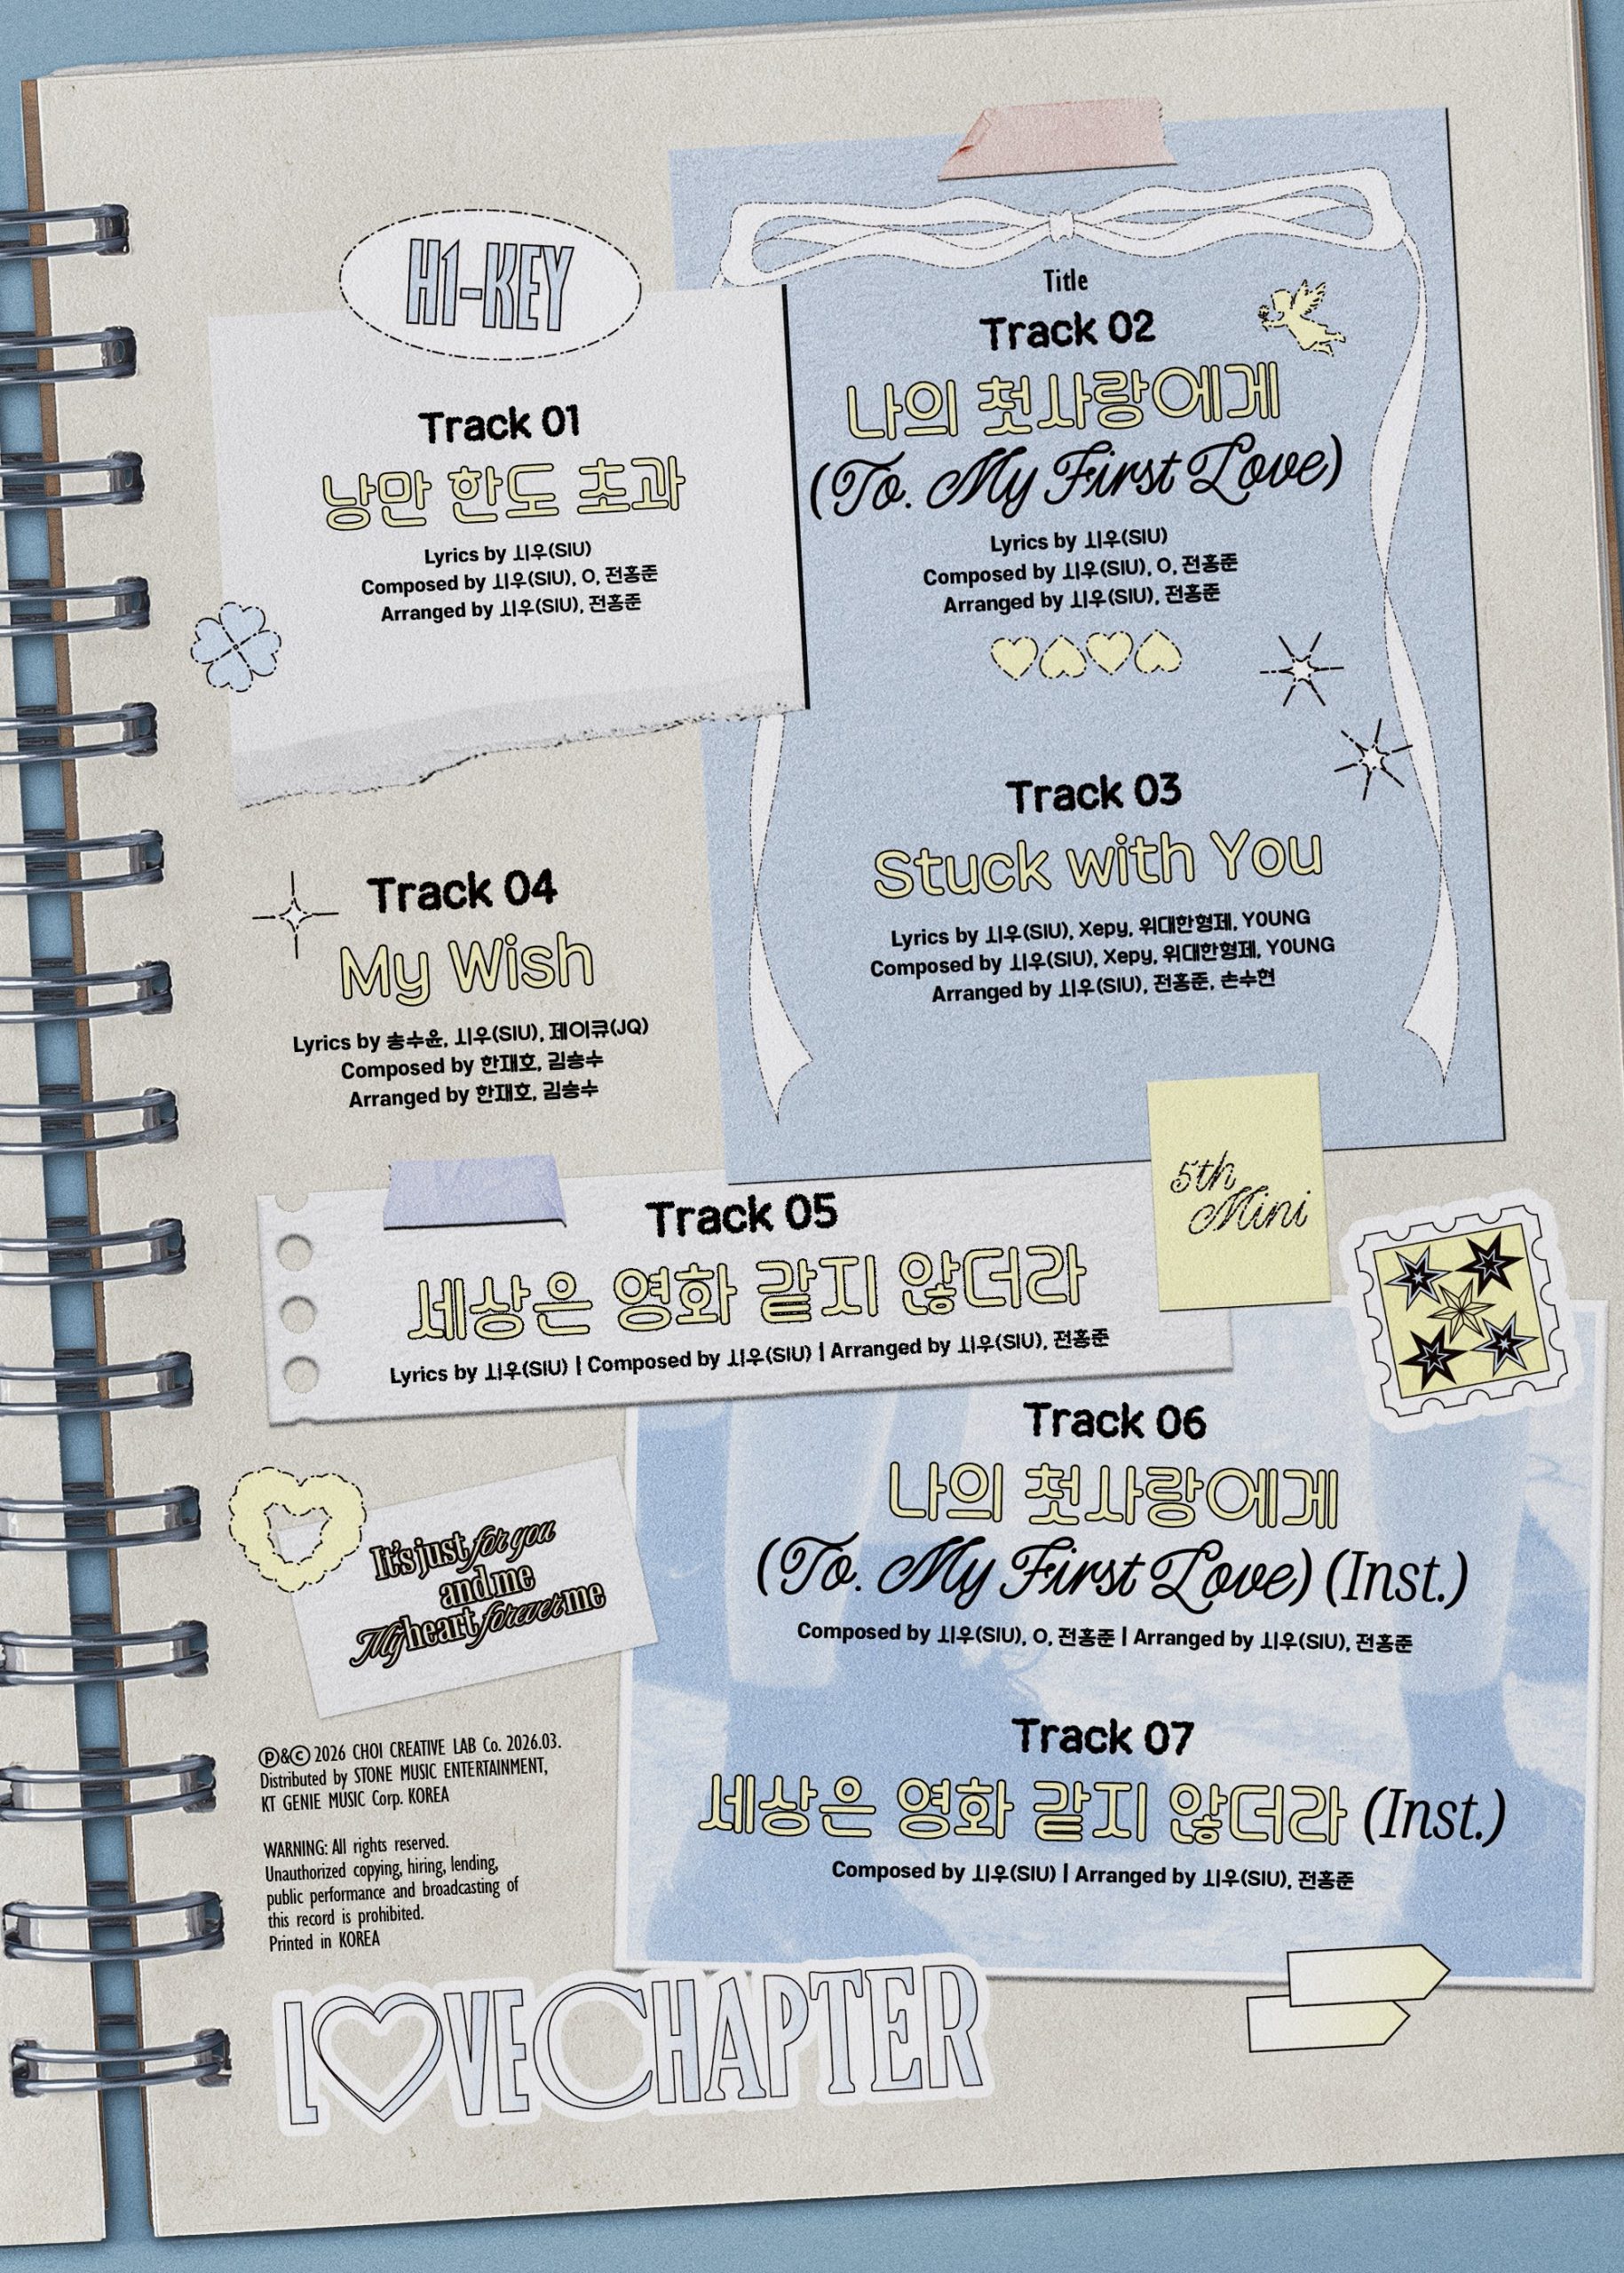 H1-KEY
Track 01
낭만 한도 초과
Lyrics by 시우(SIU)
Composed by 시우(SIU), O, 전홍준
Arranged by 시우(SIU), 전홍준
Title
Track 02
나의 첫사랑에게
(To. My First Love)
Lyrics by 시우(SIU)
Composed by 시우(SIU), O, 전홍준
Arranged by 시우(SIU), 전홍준
Track 03
Stuck with You
Lyrics by 시우(SIU), Xepy, 위대한형제, Y0UNG
Composed by 시우(SIU), Xepy, 위대한형제, Y0UNG
Arranged by 시우(SIU), 전홍준, 손수현
Track 04
My Wish
Lyrics by 송수윤, 시우(SIU), 제이큐(JQ)
Composed by 한재호, 김승수
Arranged by 한재호, 김승수
5th
Mini
Track 05
세상은 영화 같지 않더라
Lyrics by 시우(SIU) | Composed by 시우(SIU) | Arranged by 시우(SIU), 전홍준
Track 06
나의 첫사랑에게
(To. My First Love) (Inst.)
Composed by 시우(SIU), O, 전홍준 | Arranged by 시우(SIU), 전홍준
It's just for you
and me
My heart forever me
Track 07
세상은 영화 같지 않더라 (Inst.)
Composed by 시우(SIU) | Arranged by 시우(SIU), 전홍준
Ⓟ&Ⓒ 2026 CHOI CREATIVE LAB Co. 2026.03.
Distributed by STONE MUSIC ENTERTAINMENT,
KT GENIE MUSIC Corp. KOREA
WARNING: All rights reserved.
Unauthorized copying, hiring, lending,
public performance and broadcasting of
this record is prohibited.
Printed in KOREA
LOVE CHAPTER